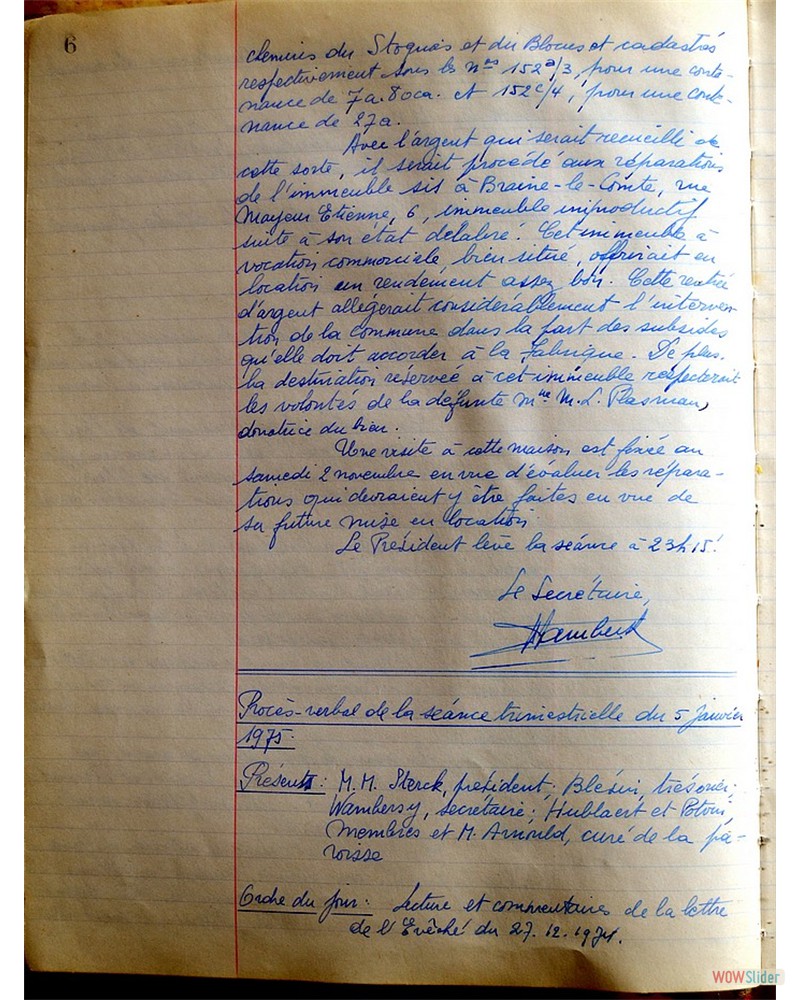 6
chemins du Stoquois et du Blocus et cadastrés
respectivement sous les nos 152a/3, pour une conte-
nance de 7a.80ca. et 152c/4, pour une conte-
nance de 27a.
Avec l'argent qui serait recueilli de
cette sorte, il serait procédé aux réparations
de l'immeuble sis à Braine-le-Comte, rue
Mayeur Etienne, 6, immeuble improductif
suite à son état délabré. Cet immeuble à
vocation commerciale, bien situé, offrirait en
location un rendement assez bon. Cette rentrée
d'argent allégerait considérablement l'interven-
tion de la commune dans la part des subsides
qu'elle doit accorder à la Fabrique. De plus,
la destination réservée à cet immeuble respecterait
les volontés de la défunte Mme M.L. Plasman,
donatrice du bien.
Une visite à cette maison est fixée au
samedi 2 novembre en vue d'évaluer les répara-
tions qui devraient y être faites en vue de
sa future mise en location.
Le Président lève la séance à 23h15.
Le Secrétaire,
Procès-verbal de la séance trimestrielle du 5 janvier
1975.
Présents: M.M. Sterck, président; Blésin, trésorier;
Wambersy, secrétaire; Hublaert et Potvin,
Membres et M. Arnould, curé de la pa-
roisse
Ordre du jour: Lecture et commentaires de la lettre
de l'Evêché du 27.12.1974.
WOWSlider